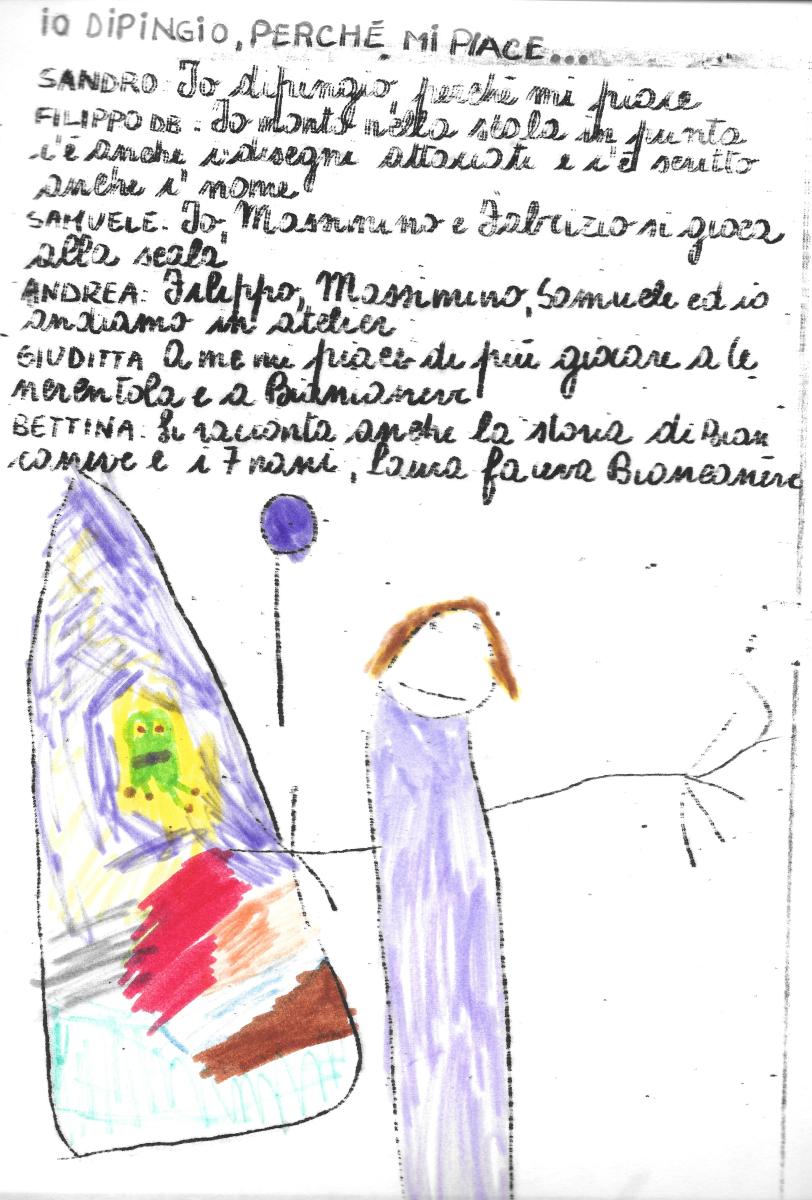 io DiPiNGiO, PERCHÉ Mi PIACE...
SANDRO: Io dipingio, perché mi piace
FILIPPO DE: Io monto nella scala in punta
c'è anche i disegni attaccati e c'è scritto
anche i' nome
SAMUELE: Io, Massimino e Fabrizio si gioca
alla scala
ANDREA: Filippo, Massimino, Samuele ed io
andiamo in atelier
GIUDITTA A me mi piace di più giocare a Ce
nerentola e a Biancaneve
BETTINA: Si racconta anche la storia di Bian
caneve e i 7 nani, Laura faceva Biancaneve